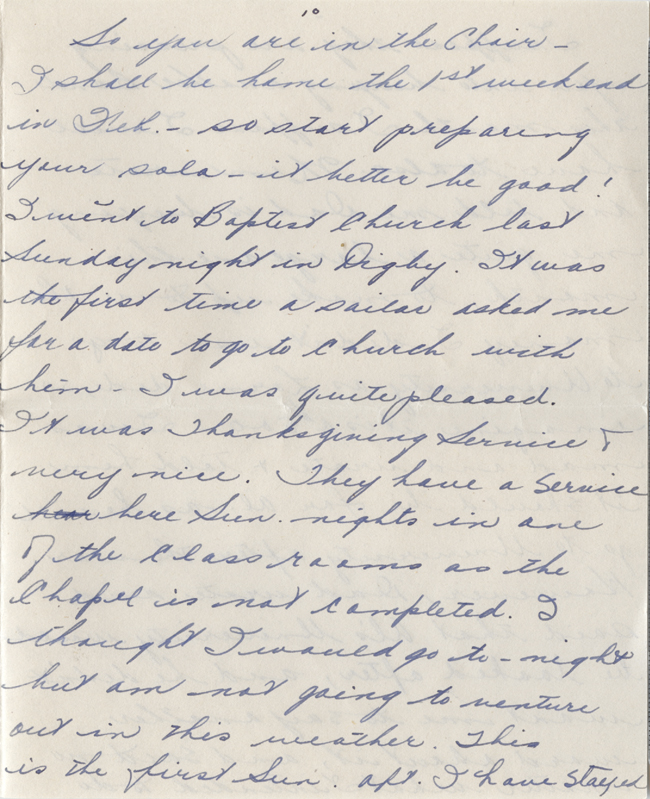 10
So you are in the Choir -
I shall be home the 1st weekend
in Feb. - so start preparing
your solo - it better be good!
I went to Baptist Church last
Sunday night in Digby. It was
the first time a sailor asked me
for a date to go to Church with
him - I was quite pleased.
It was Thanksgiving Service &
very nice. They have a Service
hear here Sun. nights in one
of the Classrooms as the
Chapel is not completed. I
thought I would go to-night
but am not going to venture
out in this weather. This
is the first Sun. aft. I have stayed